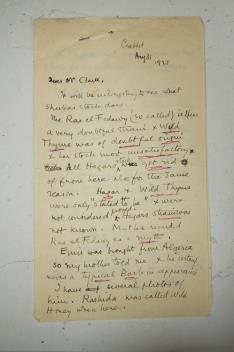 Crabbet
Aug 31
1921
Dear Mr Clark,
It will be interesting to see what
Sherbas stock does.
The Ras el Fedawy (so called) is of
a very doubtful strain & Wild
Thyme was of doubtful origin
& her stock most unsatisfactory
All Hagars stock got rid
of from here also for the same
reason. Hagar & Wild Thyme
were only "stated to be" & were
not considered proved. Thyme's sharina was
not known. Mutlak would
Ras el Fedawy as a myth.
Emir was bought from Algeria
so my brother told me & he certainly
was a typical Barb in appearance
I have several photos of
him. Rashida was called Wild
Honey when here.